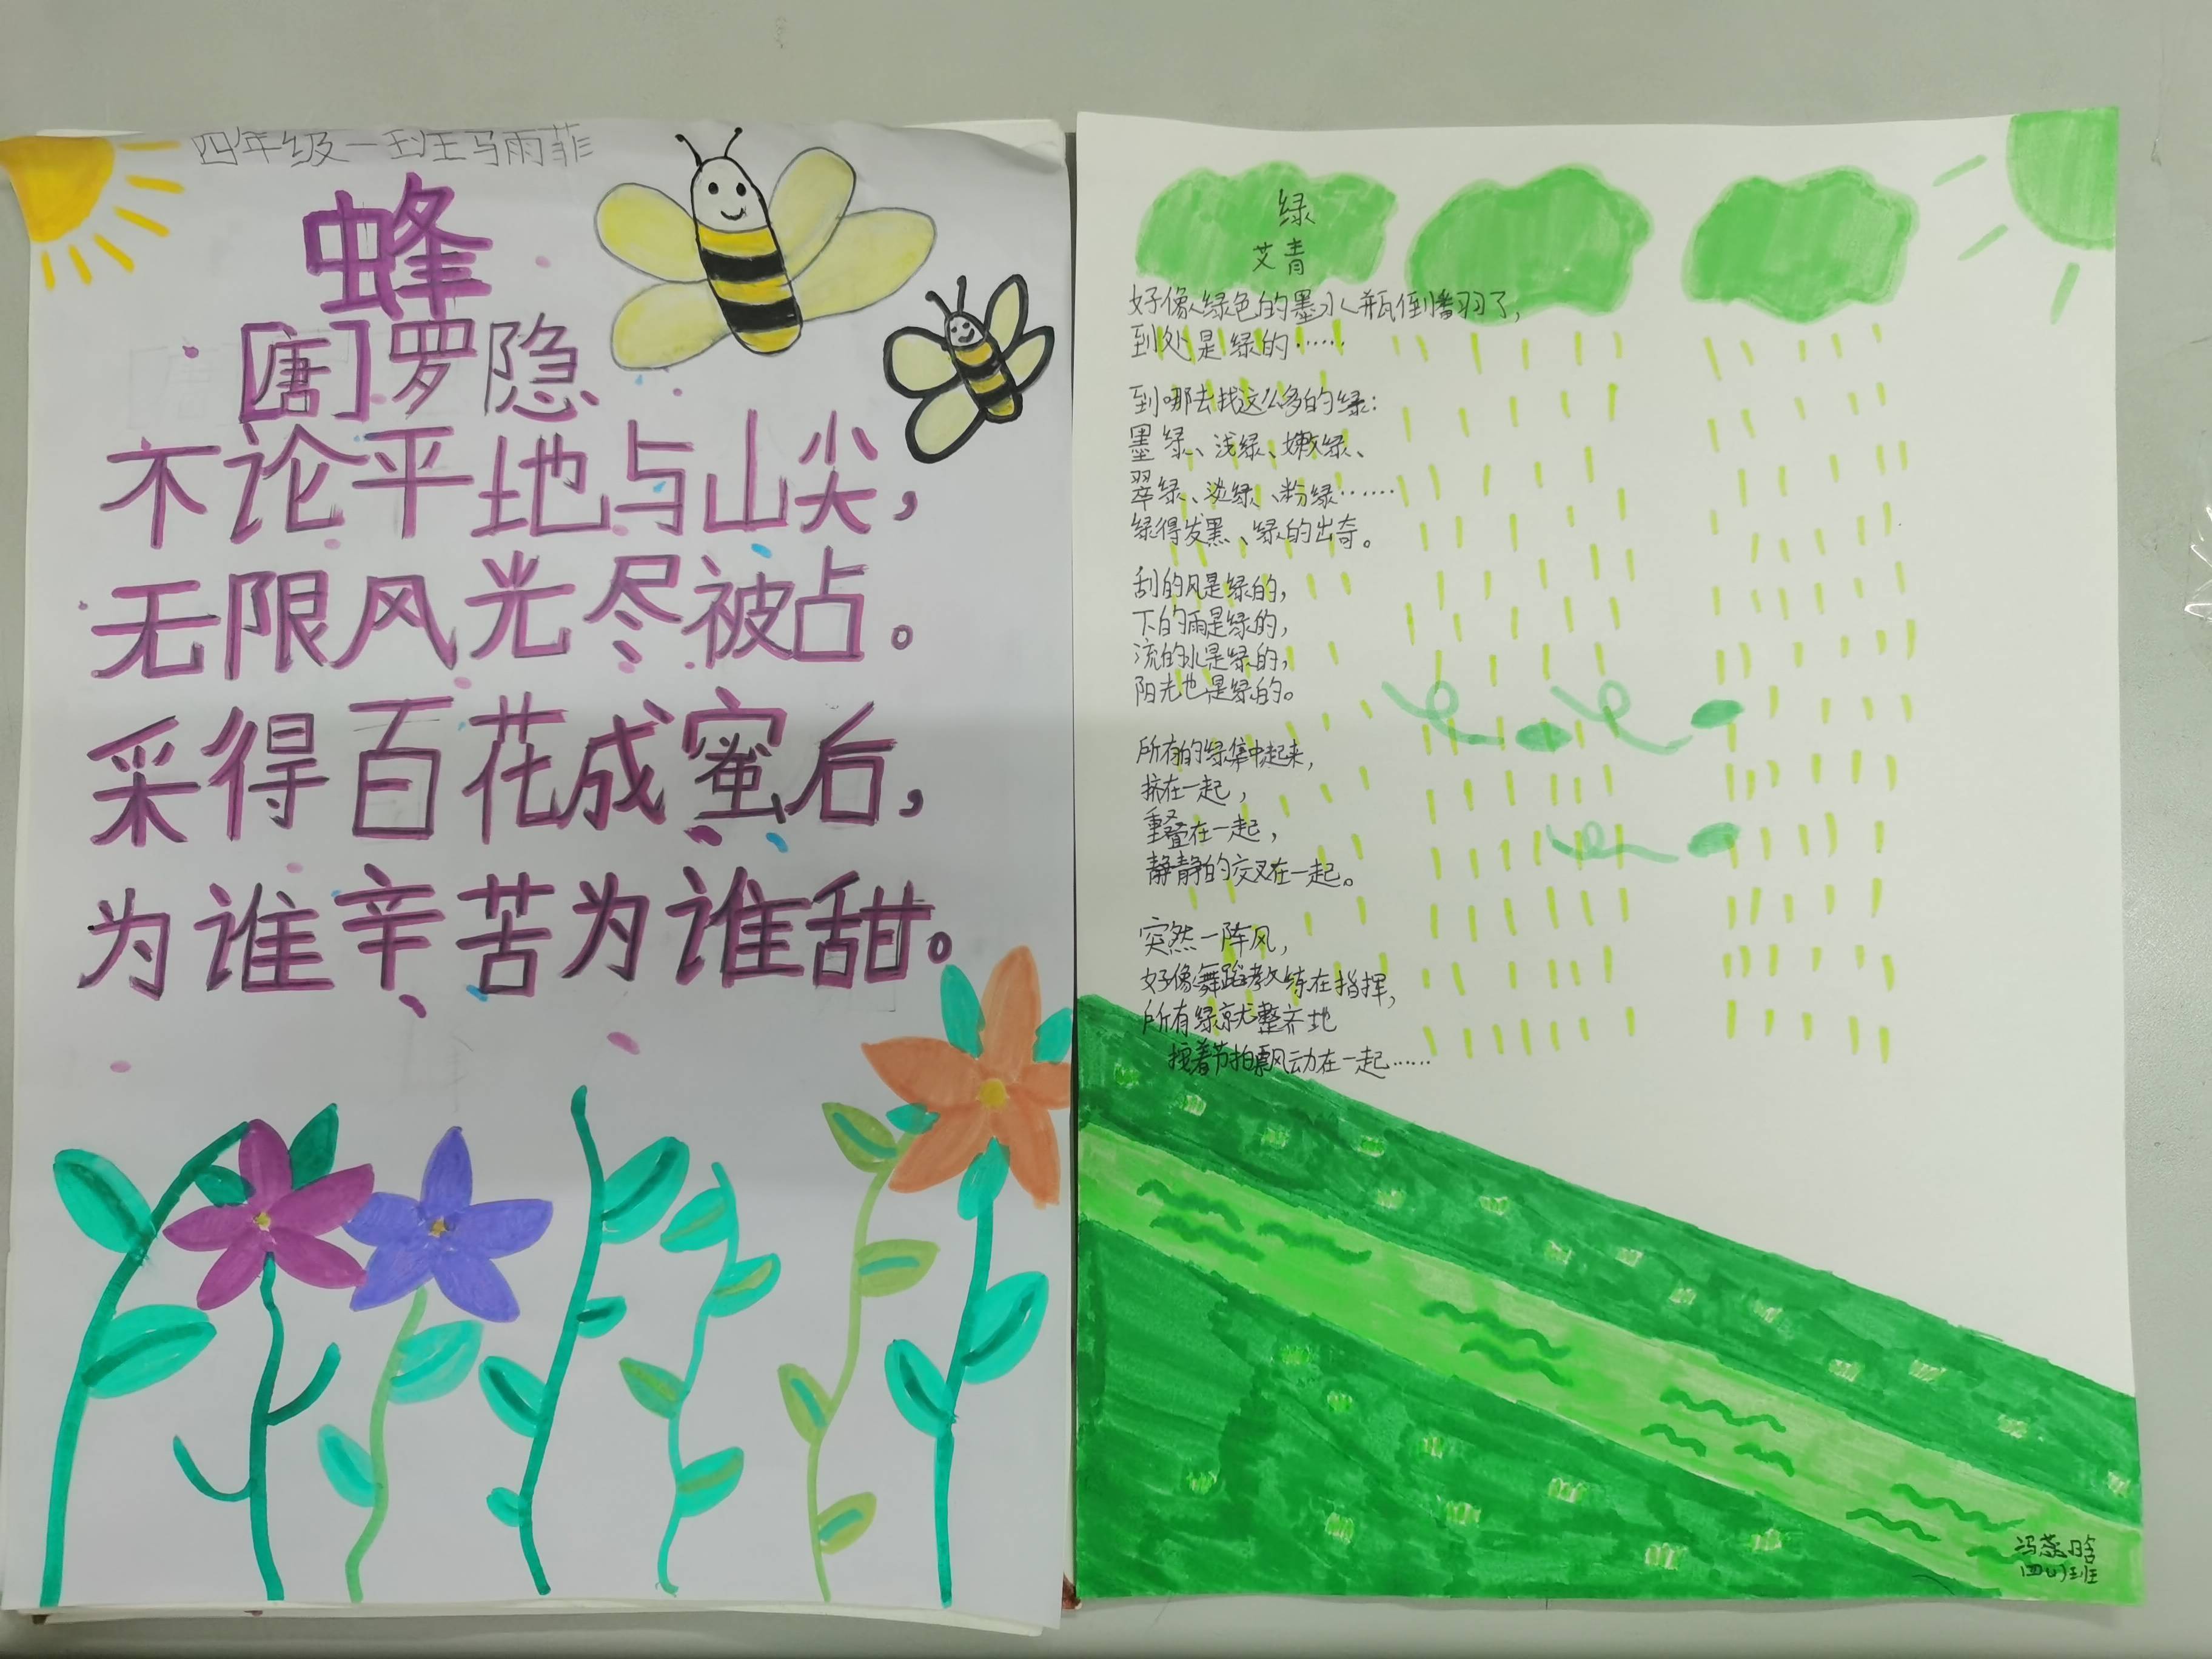 四年级一班马雨菲
蜂
[唐]罗隐
不论平地与山尖，
无限风光尽被占。
采得百花成蜜后，
为谁辛苦为谁甜。
绿
艾青
好像绿色的墨水瓶倒翻了，
到处是绿的……
到哪去找这么多的绿：
墨绿、浅绿、嫩绿、
翠绿、淡绿、粉绿……
绿得发黑、绿的出奇。
刮的风是绿的，
下的雨是绿的，
流的水是绿的，
阳光也是绿的。
所有的绿集中起来，
挤在一起，
重叠在一起，
静静的交叉在一起。
突然一阵风，
好像舞蹈教练在指挥，
所有绿就整齐地
按着节拍飘动在一起……
冯蕊晗
四(1)班